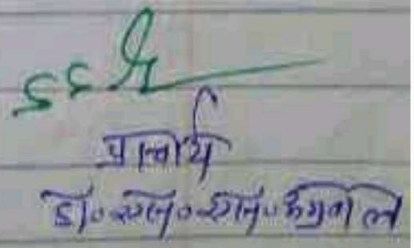 प्राचार्य
डॉ० एल० एल० अग्रवाल